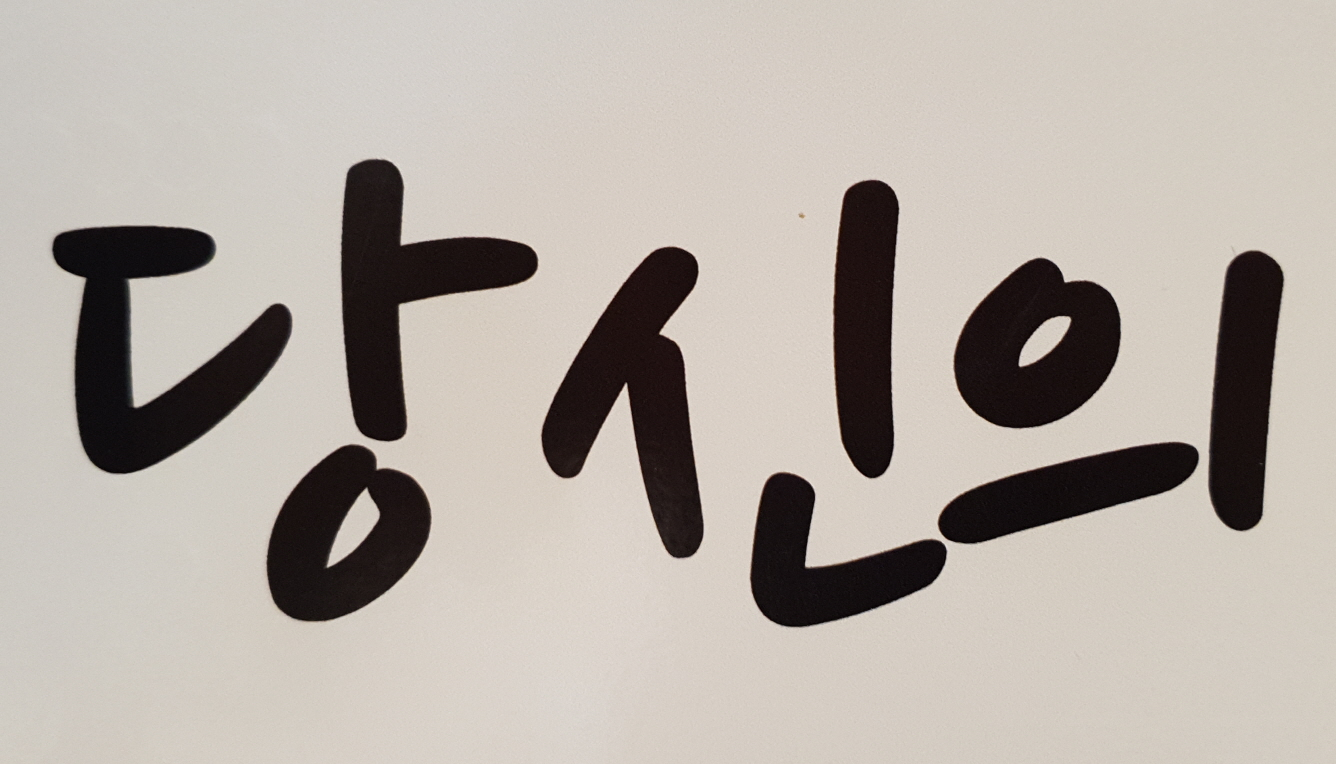 당신의